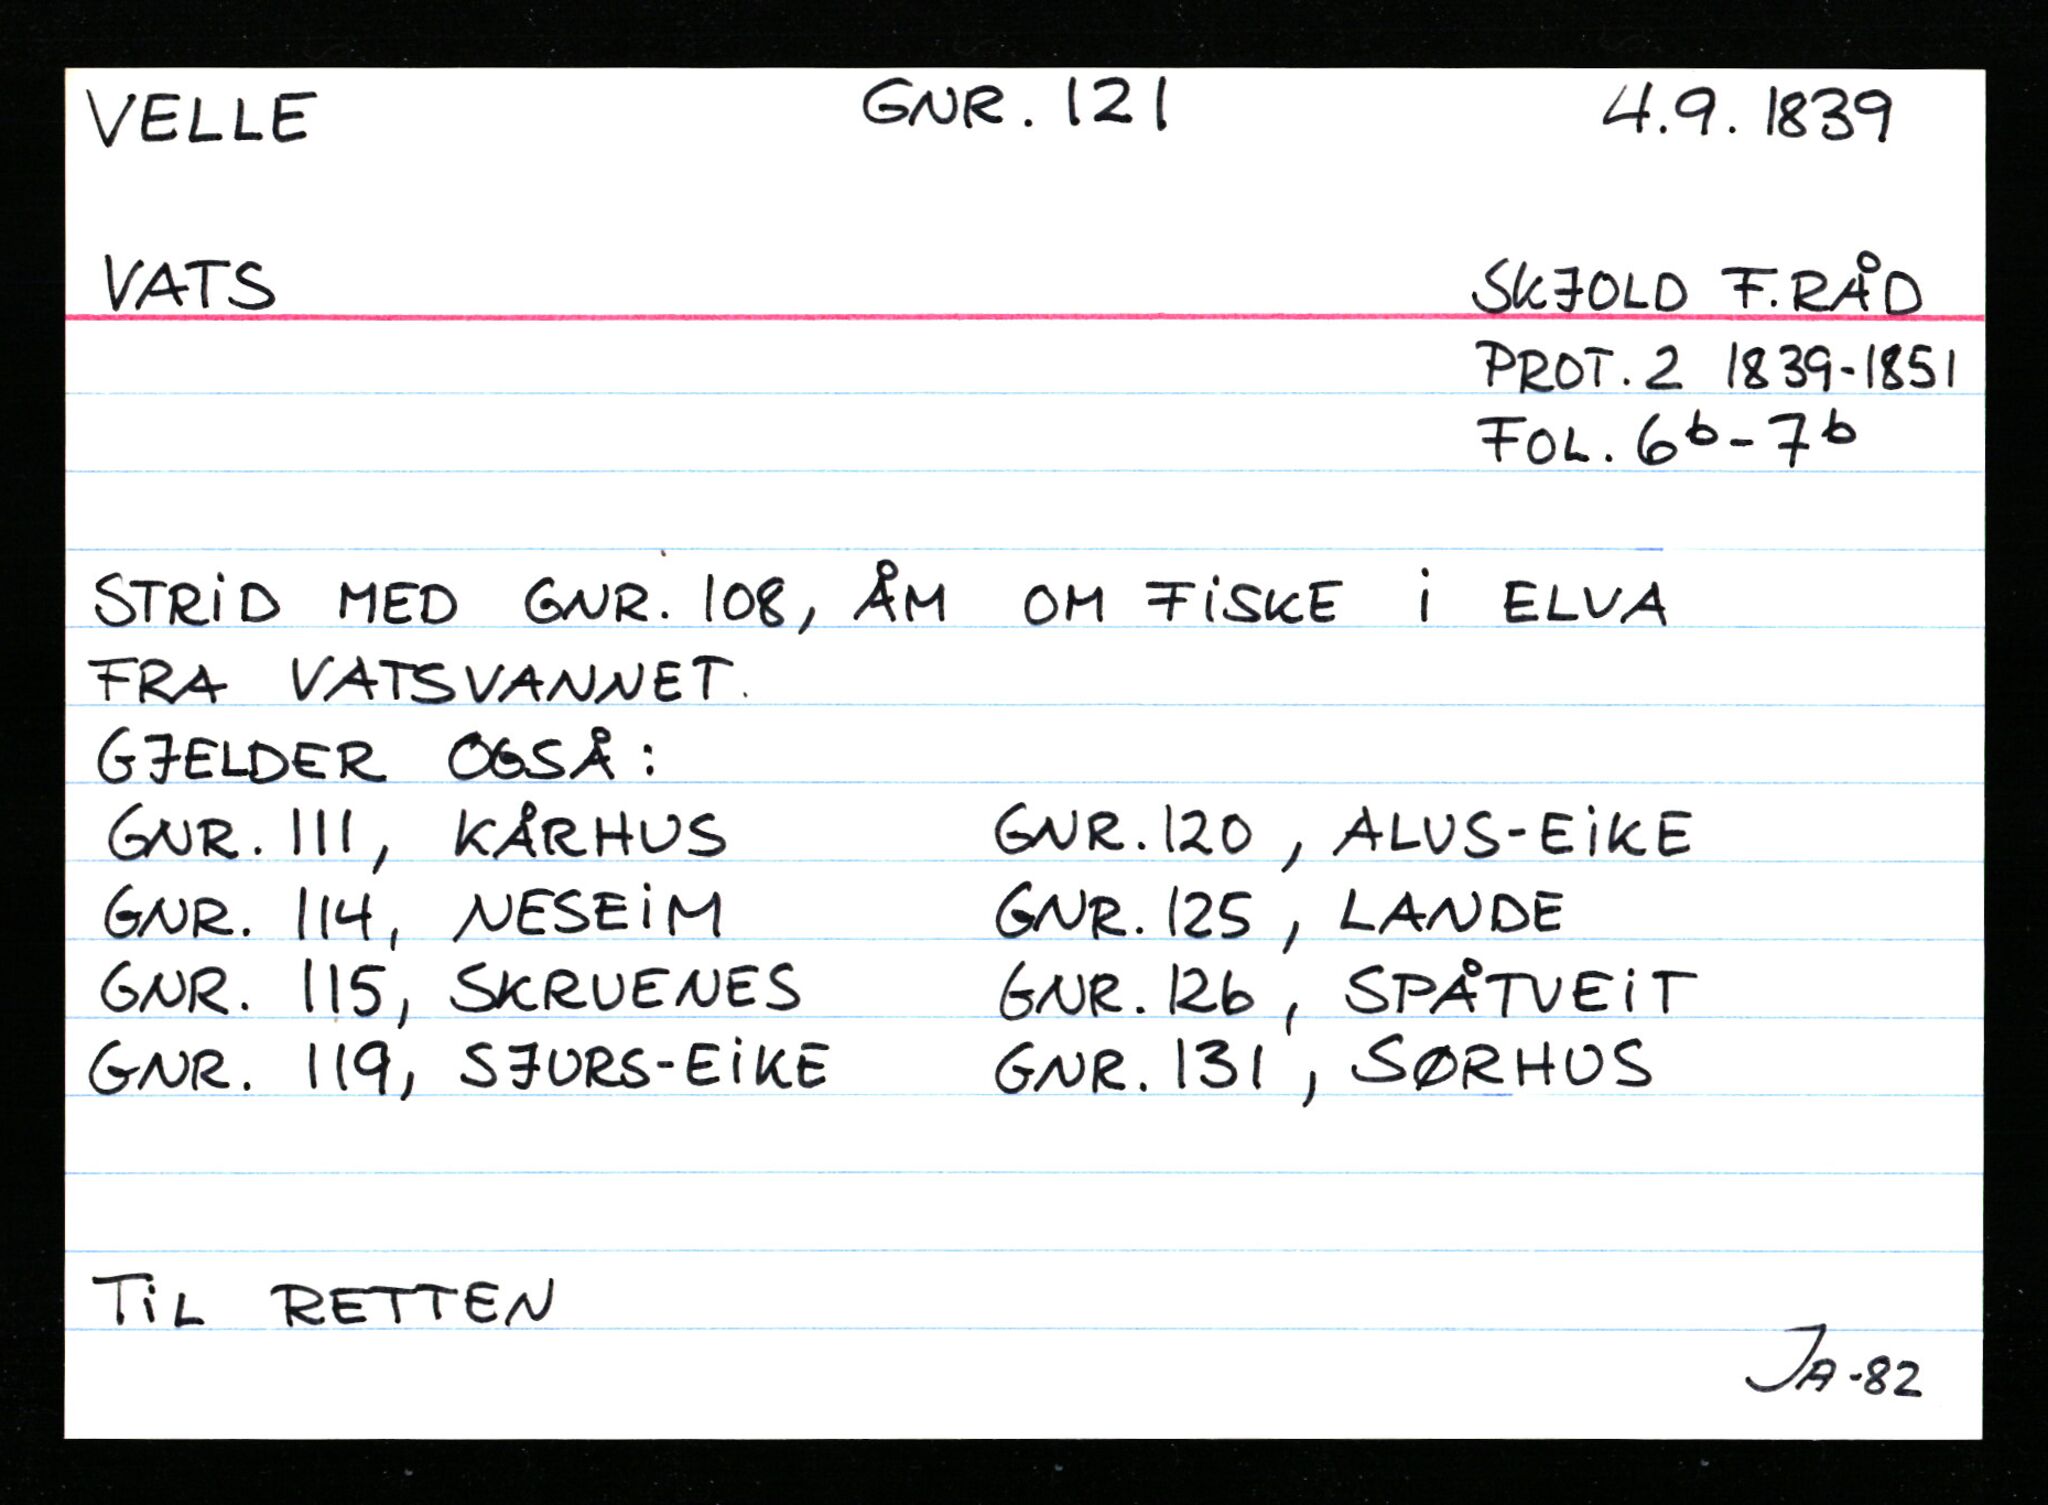 VELLE GNR. 121 4.9. 1839
VATS SKJOLD F.RÅD
PROT. 2 1839-1851
FOL. 6b-7b
STRiD MED GNR. 108, ÅM OM FiSKE i ELVA
FRA VATSVANNET.
GJELDER OGSÅ:
GNR. 111, KÅRHUS GNR. 120, ALUS-EiKE
GNR. 114, NESEiM GNR. 125, LANDE
GNR. 115, SKRUENES GNR. 126, SPÅTVEiT
GNR. 119, SJURS-EiKE GNR. 131, SØRHUS
TiL RETTEN
JA-82